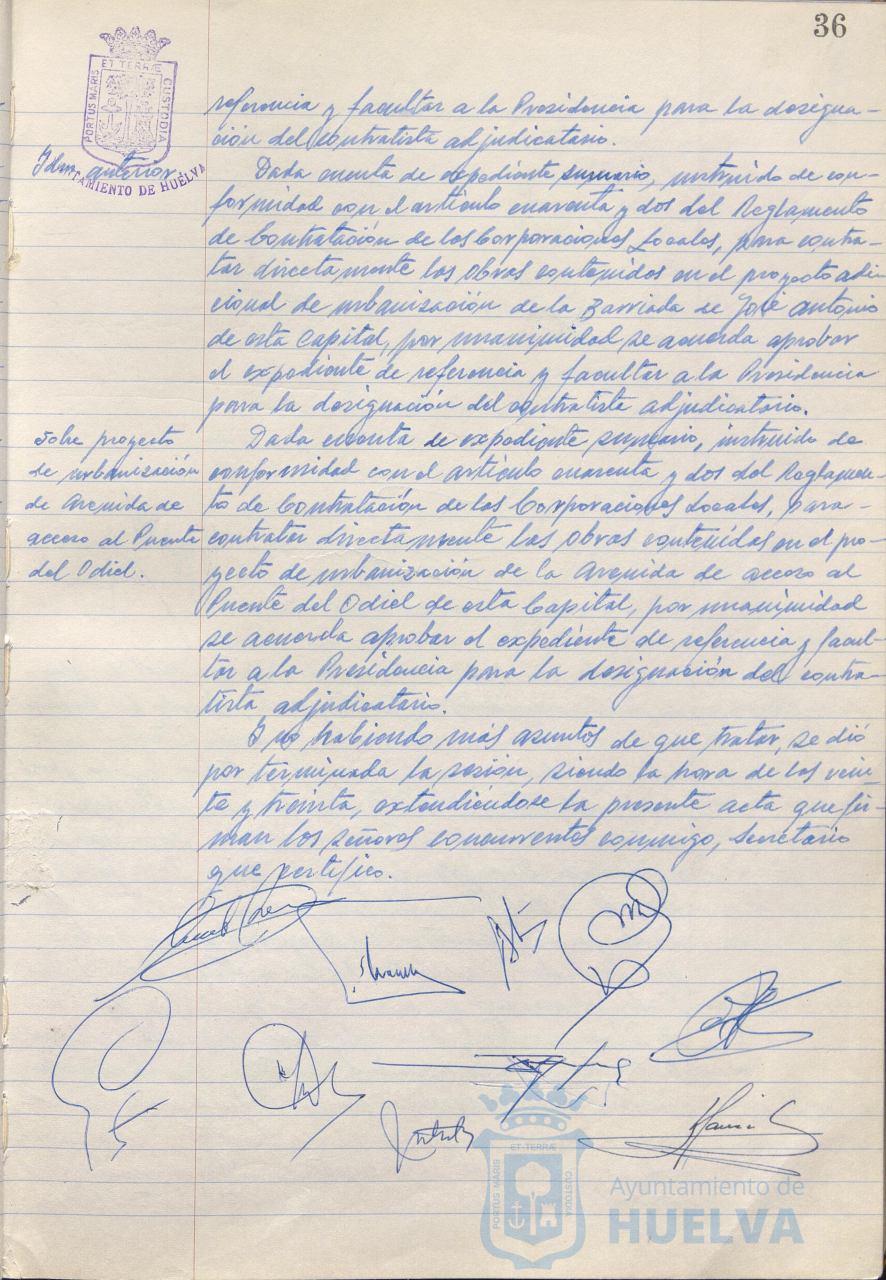 36
ET TERRÆ
PORTUS MARIS
CUSTODIA
AYUNTAMIENTO DE HUELVA
referencia y facultar a la Presidencia para la designa-
ción del contratista adjudicatario.
Idem anterior.
Dada cuenta de expediente sumario, instruido de con-
formidad con el artículo cuarenta y dos del Reglamento
de Contratación de las Corporaciones Locales, para contra-
tar directamente las obras contenidas en el proyecto adi-
cional de urbanización de la Barriada de José Antonio
de esta Capital, por unanimidad se acuerda aprobar
el expediente de referencia y facultar a la Presidencia
para la designación del contratista adjudicatario.
Sobre proyecto
de urbanización
de Avenida de
acceso al Puente
del Odiel.
Dada cuenta de expediente sumario, instruido de
conformidad con el artículo cuarenta y dos del Reglamen-
to de Contratación de las Corporaciones Locales, para-
contratar directamente las obras contenidas en el pro-
yecto de urbanización de la Avenida de acceso al
Puente del Odiel de esta Capital, por unanimidad
se acuerda aprobar el expediente de referencia y facul-
tar a la Presidencia para la designación del contra-
tista adjudicatario.
Y no habiendo más asuntos de que tratar, se dió
por terminada la sesión, siendo la hora de las vein-
te y treinta, extendiéndose la presente acta que fir-
man los señores concurrentes conmigo, secretario
que certifico.
ET TERRÆ
PORTUS MARIS
CUSTODIA
Ayuntamiento de
HUELVA